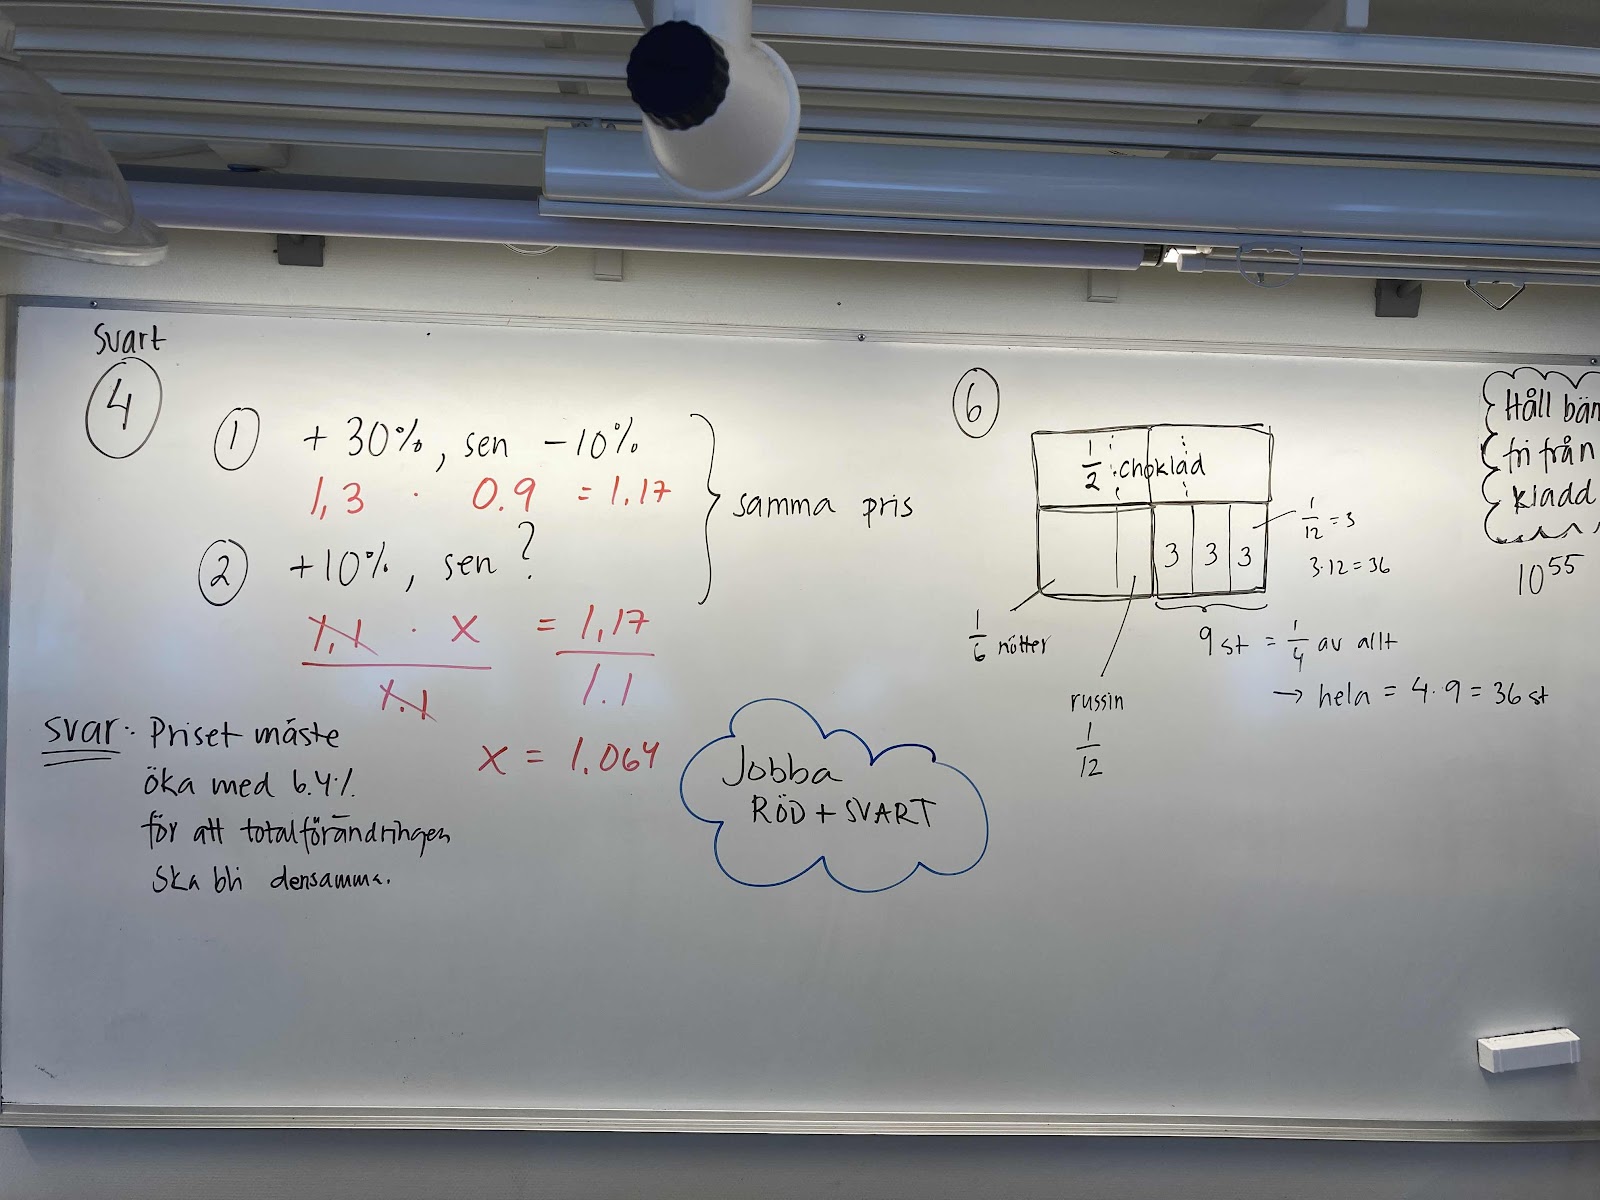 Svart
4
1 + 30%, sen -10%
1,3 · 0.9 = 1.17
2 +10%, sen ?
samma pris
1,1 · x = 1,17
1.1 1.1
x = 1.064
svar: Priset måste
öka med 6.4%
för att totalförändringen
ska bli densamma.
Jobba
RÖD + SVART
6
1/2 choklad
3 3 3
1/12 = 3
3·12 = 36
1/6 nötter
russin
1/12
9 st = 1/4 av allt
→ hela = 4·9 = 36 st
Håll bän
fri från
kladd
10⁵⁵